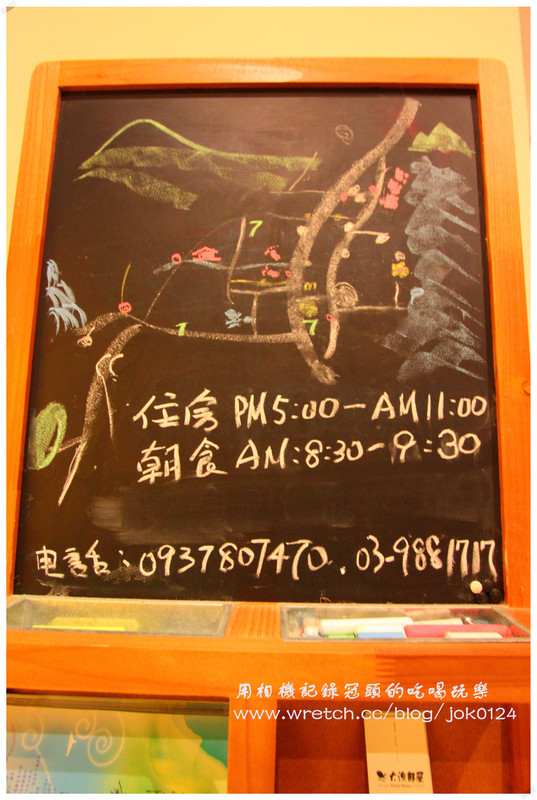 7
7
7
住房 PM5:00-AM11:00
朝食 AM:8:30-9:30
电話:0937807470. 03-9881717
用相機記錄冠頭的吃喝玩樂
www.wretch.cc/blog/jok0124